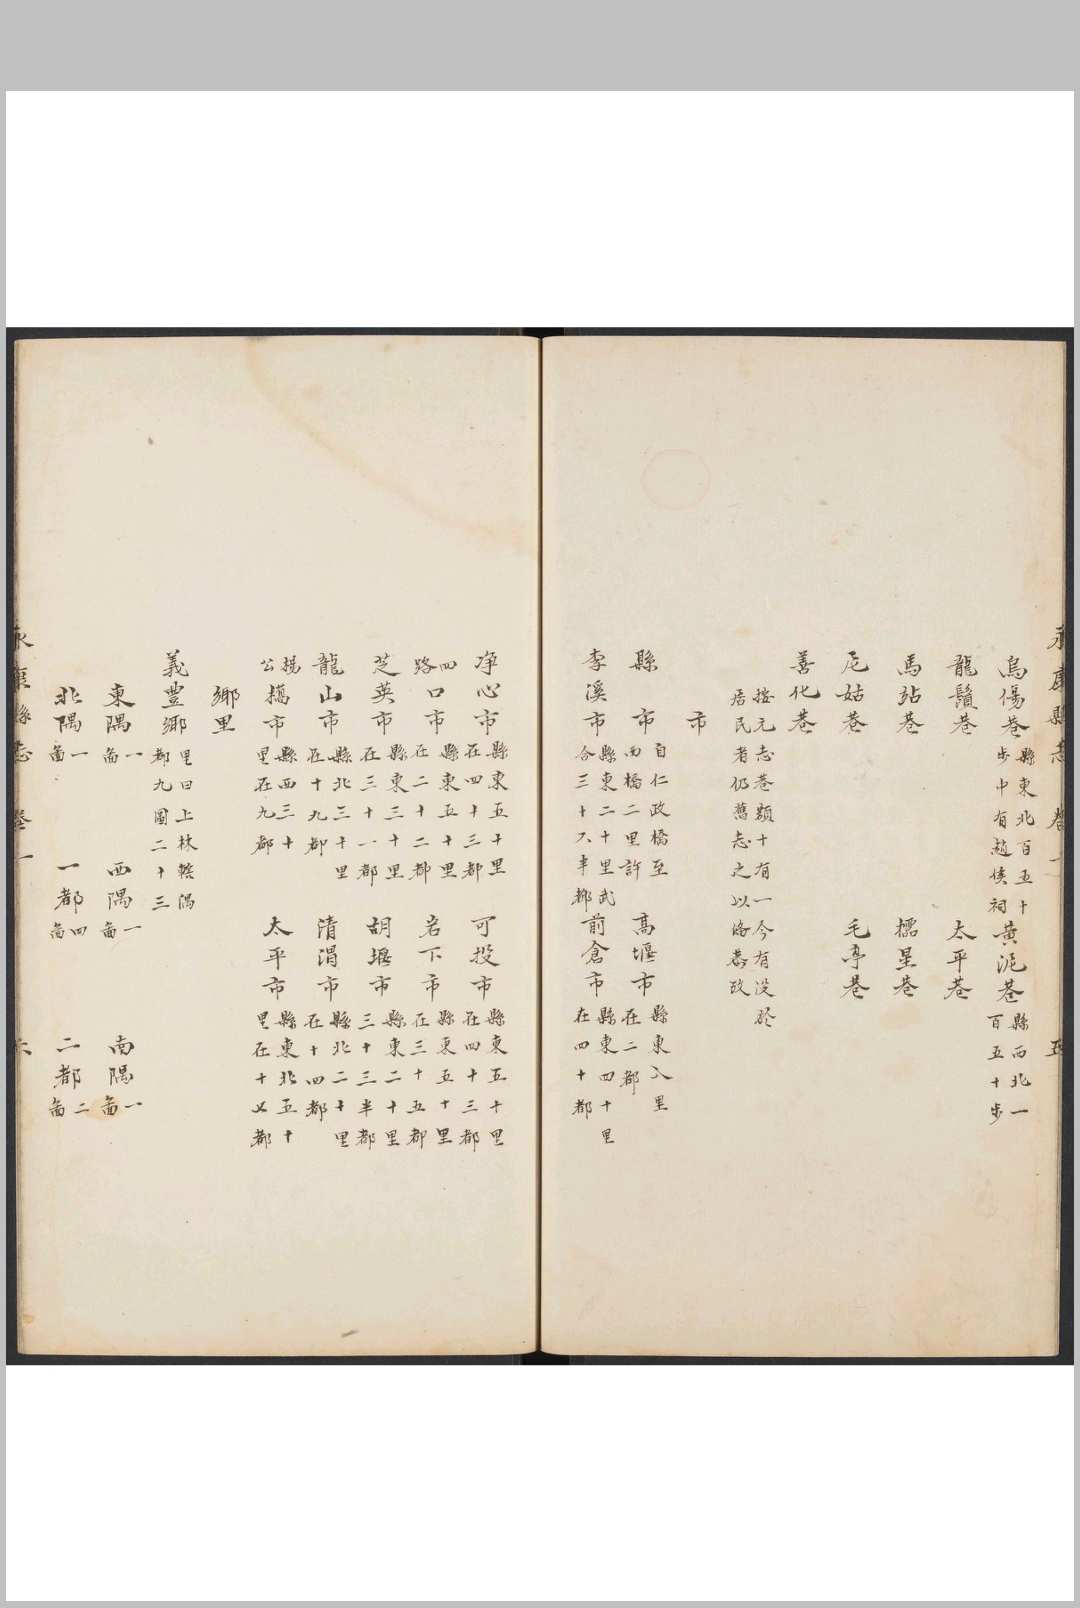 永康縣志 卷一 五
烏傷巷 縣東北百五十步中有趙侯祠 黃泥巷 縣西北一百五十步
龍鬚巷 太平巷
馬站巷 櫺星巷
尼姑巷 毛亭巷
善化巷
按元志巷額十有一今有沒於
居民者仍舊志之以俟
市
縣市 自仁政橋至南橋二里許 高堰市 縣東入里在二都
李溪市 縣東二十里武合三十六半都 前倉市 縣東四十里在四十都
净心市 縣東五十里在四十三都 可投市 縣東五十里在四十三都
四路口市 縣東五十里在二十二都 岩下市 縣東五十里在三十五都
芝英市 縣東三十里在三十一都 胡堰市 縣東二十里三十三半都
龍山市 縣北三十里在十九都 清渭市 縣北二十里在十四都
楊公橋市 縣西三十里在九都 太平市 縣東北五十里在十七都
鄉里
義豐鄉 里曰上林轄隅都九圖二十三
東隅 一啚 西隅 一啚 南隅 一啚
北隅 一啚 一都 四啚 二都 二啚
永康縣志 卷一 六